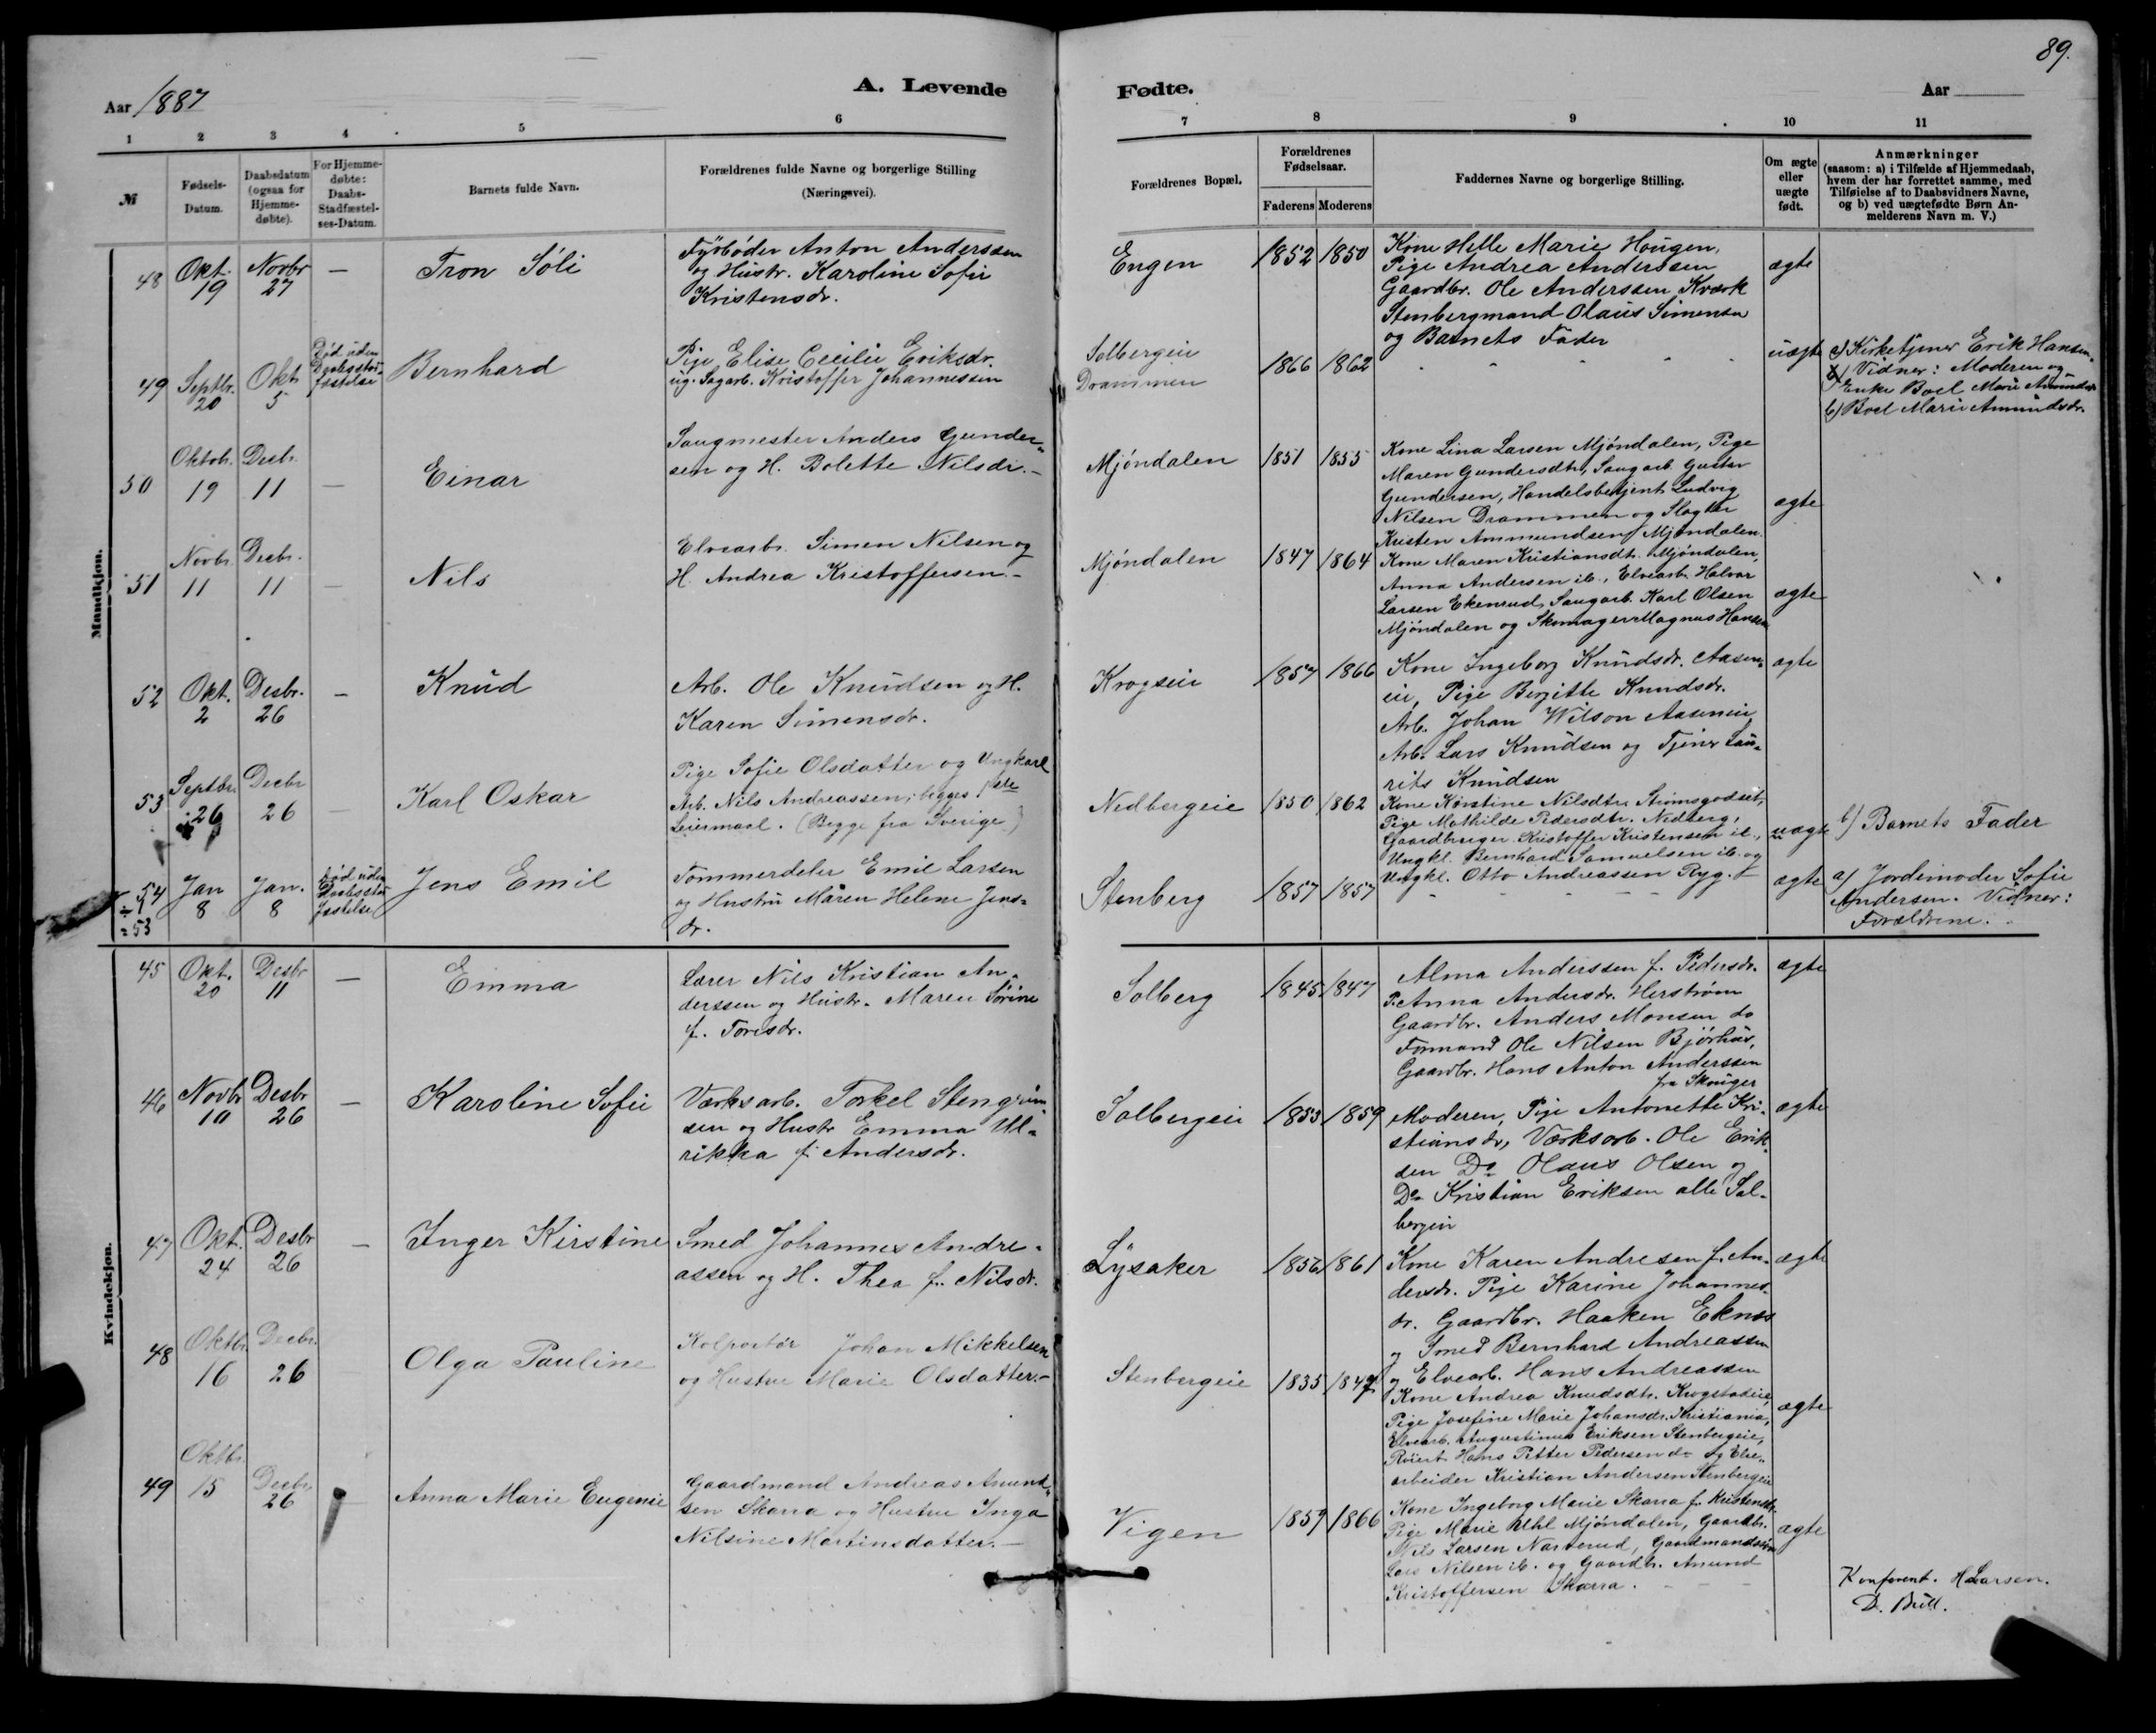 89.
Aar 1887
A. Levende
Fødte.
Aar
1 2 3 4 5 6
7 8 9 10 11
№
Fødsels-Datum.
Daabsdatum (ogsaa for Hjemme-døbte).
For Hjemme-døbte: Daabs-Stadfæstel-ses-Datum.
Barnets fulde Navn.
Forældrenes fulde Navne og borgerlige Stilling
(Næringsvei).
Forældrenes Bopæl.
Forældrenes Fødselsaar.
Faderens Moderens
Faddernes Navne og borgerlige Stilling.
Om ægte eller uægte født.
Anmærkninger
(saasom: a) i Tilfælde af Hjemmedaab,
hvem der har forrettet samme, med
Tilføielse af to Daabsvidners Navne,
og b) ved uægtefødte Børn An-
melderens Navn m. V.)
Mandkjøn.
48 Okt. 19 Novbr 27 — Tron Sóli
Fyrbóder Anton Anderssen
og Hustr. Karoline Sofie
Kristensdr.
Engen 1852 1850
Kone Helle Marie Haugen,
Pige Andrea Anderssen
Gaardbr. Ole Anderssen Kværk
Stenbergmand Olaus Simensen
og Barnets Fader
ægte
49 Septbr. 20 Okt 5
Død uden
Daabsstad-
fæstelse
Bernhard
Pige Elise Cecilie Eriksdr.
ug. Sagarb. Kristoffer Johannessen
Solbergeie
Drammen
1866 1862
uægte
a) Kirketjener Erik Hansen.
Vidner: Moderen og
Enke Boel Marie Amundsdr.
b) Boel Marie Amundsdr.
50 Oktob. 19 Decbr. 11 — Einar
Saugmester Anders Gunder-
sen og H. Bolette Nilsdr. —
Mjóndalen 1851 1855
Kone Lina Larsen Mjóndalen, Pige
Maren Gundersdtr, Saugarb. Gustav
Gundersen, Handelsbetjent Ludvig
Nilsen Drammen og Slagter
Kristen Ammundsen Mjøndalen.
ægte
51 Novbr. 11 Decbr. 11 — Nils
Elvearb. Simen Nilsen og
H. Andrea Kristoffersen. —
Mjóndalen 1847 1864
Kone Maren Kristiansdtr. Mjóndalen,
Anna Andersen ib., Elvearb. Halvor
Larsen Ekenrud, Saugarb. Karl Olsen
Mjóndalen og Skomager Magnus Hansen
ægte
52 Okt. 2 Desbr. 26 — Knud
Arb. Ole Knudsen og H.
Karen Simensdr.
Krogseie 1857 1866
Kone Ingeborg Knudsdr. Aasen-
eie, Pige Bergitte Knudsdr.
Arb. Johan Wilson Aaseneie,
Arb. Lars Knudsen og Tjener Lau-
rits Knudsen
ægte
53 Septbr. 26 Decbr 26 — Karl Oskar
Pige Sofie Olsdatter og Ungkarl
Arb. Nils Andreassen, begges 1ste
Leiermaal. (Begge fra Sverige)
Nedbergeie 1850 1862
Kone Kirstine Nilsdtr. Strømsgodset,
Pige Mathilde Pedersdtr. Nedberg,
Gaardbruger Kristoffer Kristensen ib.,
Ungkl. Bernhard Samuelsen ib. og
Ungkl. Otto Andreassen Ryg. —
uægte
b) Barnets Fader
54
÷ 1
= 53
Jan 8 Jan. 8
Død uden
Daabsstad-
fæstelse
Jens Emil
Tømmerdeler Emil Larsen
og Hustru Maren Helene Jens-
dr.
Stenberg 1857 1857
ægte
a) Jordemoder Sofie
Andersen. Vidner:
Forældrene.
Kvindekjøn.
45 Okt. 20 Desbr 11 — Emma
Lærer Nils Kristian An-
derssen og Hustr. Maren Sørine
f. Toresdr.
Solberg 1845 1847
Alma Anderssen f. Pedersdr.
P. Anna Andersdr. Herstrøm
Gaardbr. Anders Monsen do
Formand Ole Nilsen Bjørhus,
Gaardbr. Hans Anton Anderssen
fra Skouger
ægte
46 Novbr 10 Desbr 26 — Karoline Sofie
Værksarb. Torkel Stengrim-
sen og Hustr Emma Ul-
rikka f. Andersdr.
Solbergeie 1853 1859
Moderen, Pige Antonette Kri-
stiansdr, Værksarb. Ole Erik-
sen Do Olaus Olsen og
Do Kristian Eriksen alle Sol-
bergeie
ægte
47 Okt. 24 Desbr 26 — Inger Kirstine
Smed Johannes Andre-
assen og H. Thea f. Nilsdr.
Lysaker 1856 1861
Kone Karen Andresen f. An-
dersdr. Pige Karine Johannes-
dr. Gaardbr. Haaken Eknes
og Smed Bernhard Andreassen
og Elvearb. Hans Andreassen
ægte
48 Oktbr. 16 Decbr. 26 Olga Pauline
Kolportør Johan Mikkelsen
og Hustru Marie Olsdatter. —
Stenbergeie 1835 1847
Kone Andrea Knudsdtr. Krogstadeie,
Pige Josefine Marie Johansdr. Kristiania,
Elvearb. Augustinus Eriksen Stenbergeie,
Hans Petter Pedersen do og Elve-
arbeider Kristian Andersen Stenbergeie
ægte
49 Oktbr. 15 Decbr. 26 Anna Marie Eugenie
Gaardmand Andreas Amund-
sen Skarra og Hustru Inga
Nilsine Martinsdatter. —
Vigen 1859 1866
Kone Ingeborg Marie Skarra f. Kristensdr.
Pige Marie Uhl Mjóndalen, Gaardbr.
Nils Larsen Narverud, Gaardmandssøn
Lars Nilsen ib. og Gaardbr. Amund
Kristoffersen Skarra.
ægte
Konferent. H Larsen.
D. Bull.